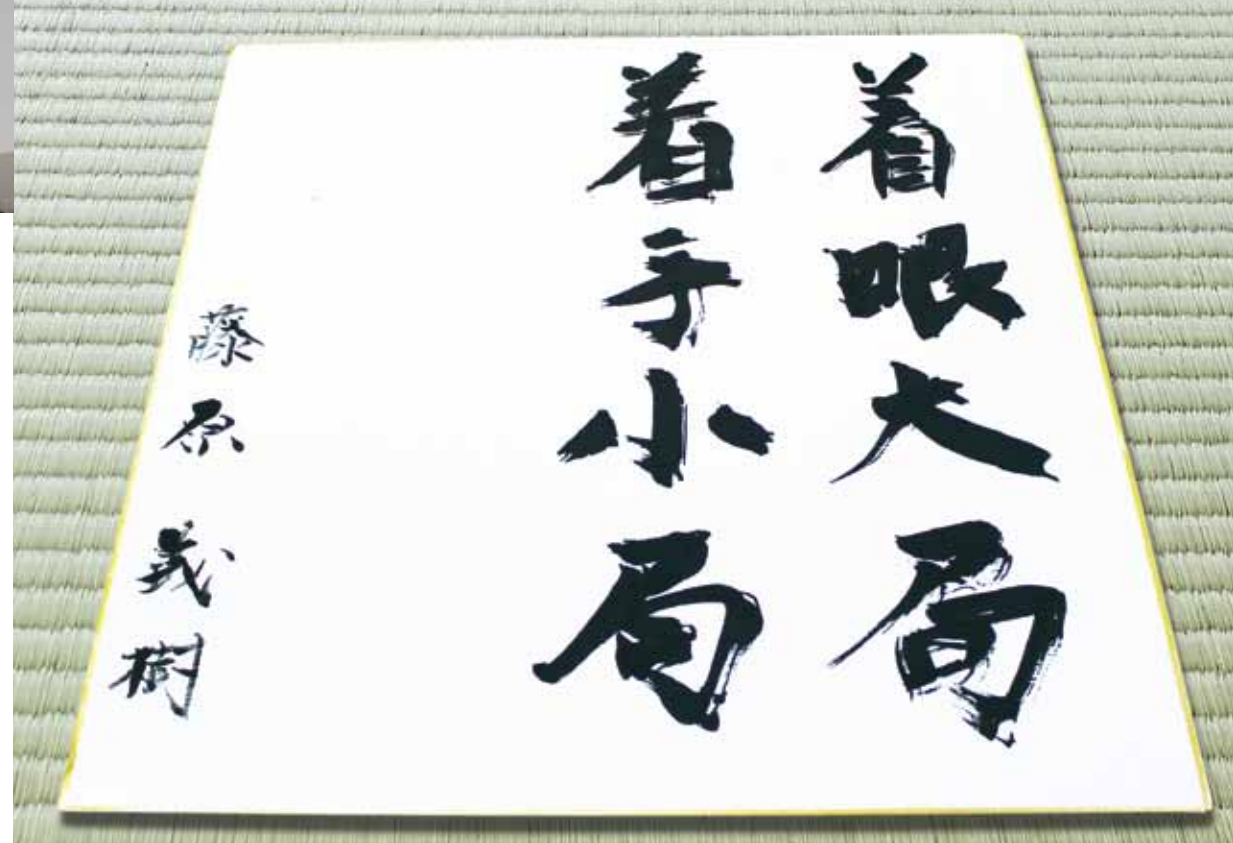 着眼大局
着手小局
藤原茂樹